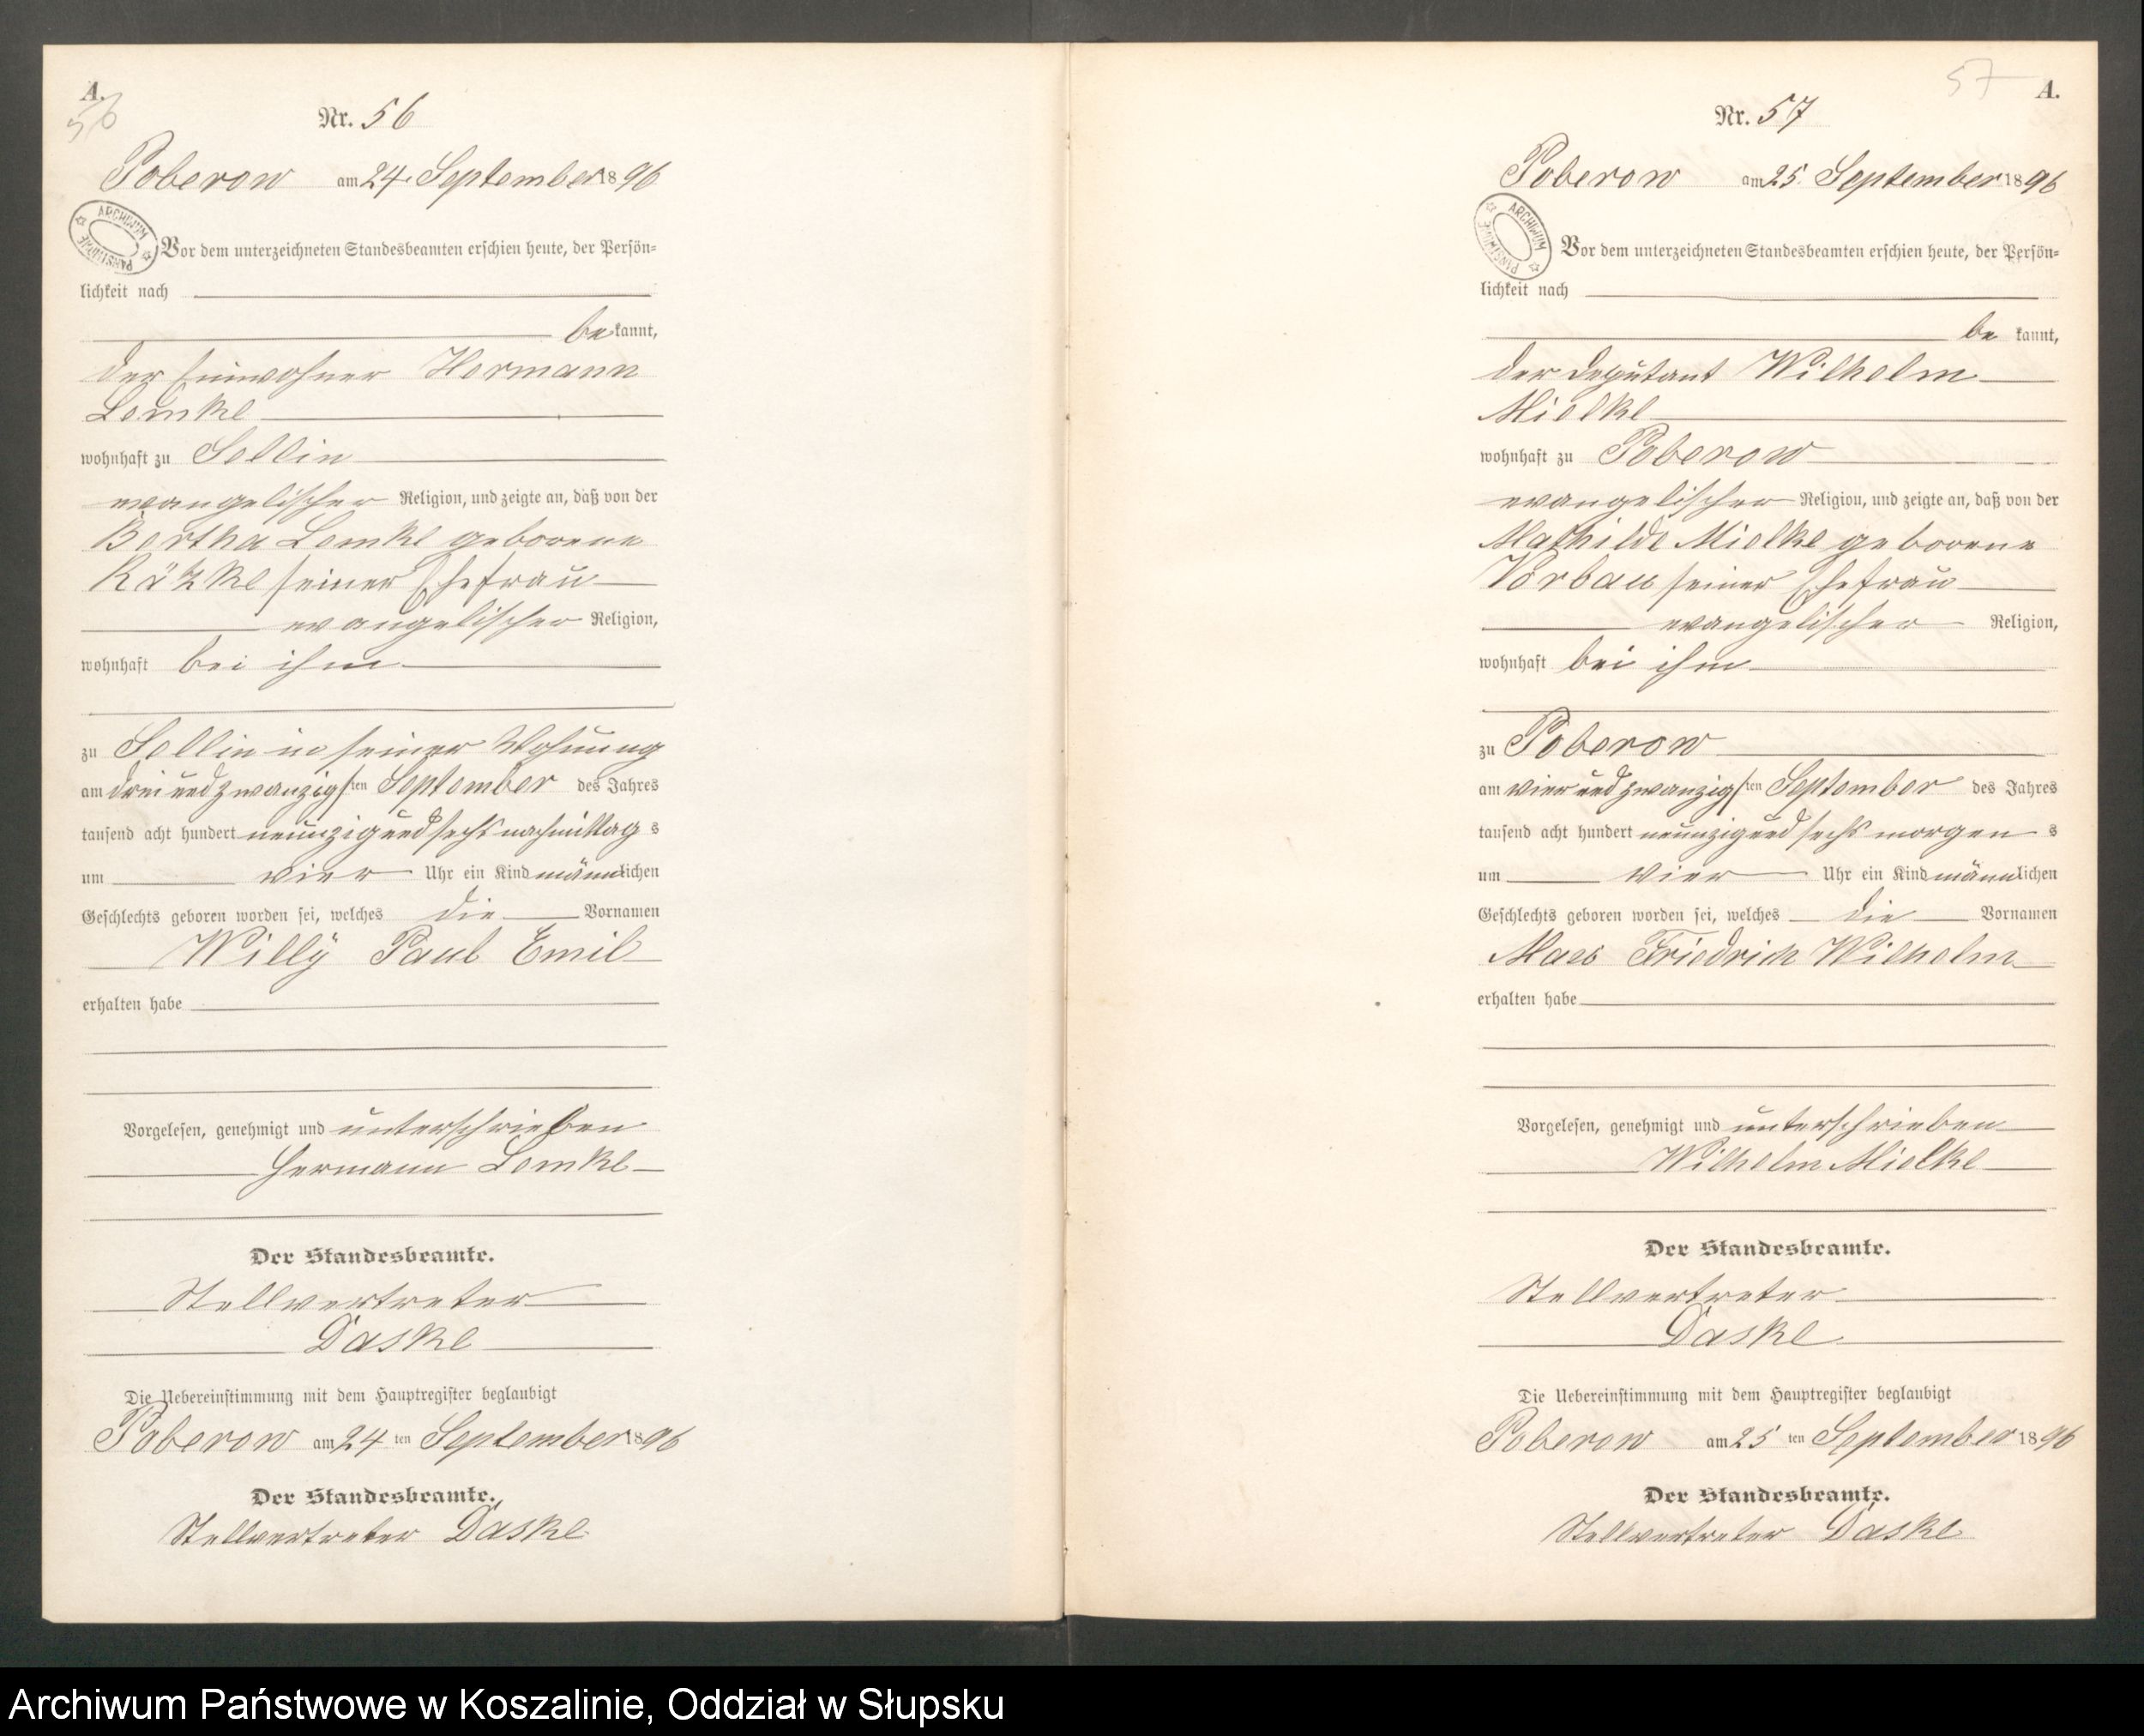 A.
56
Nr. 56
Poberow am 24. September 1896
ARCHIWUM PAŃSTWOWE
Vor dem unterzeichneten Standesbeamten erschien heute, der Persön=
lichkeit nach
be kannt,
der Einwohner Hermann
Lemke
wohnhaft zu Sellin
evangelischer Religion, und zeigte an, daß von der
Bertha Lemke geborene
Rätzke seiner Ehefrau
evangelischer Religion,
wohnhaft bei ihm
zu Sellin in seiner Wohnung
am drei und zwanzigsten September des Jahres
tausend acht hundert neunzig und sechs nachmittags
um vier Uhr ein Kind männlichen
Geschlechts geboren worden sei, welches die Vornamen
Willÿ Paul Emil
erhalten habe
Vorgelesen, genehmigt und unterschrieben
Hermann Lemke
Der Standesbeamte.
Stellvertreter
Daske
Die Uebereinstimmung mit dem Hauptregister beglaubigt
Poberow am 24 ten September 1896
Der Standesbeamte.
Stellvertreter Daske
57
A.
Nr. 57
Poberow am 25. September 1896
ARCHIWUM PAŃSTWOWE
Vor dem unterzeichneten Standesbeamten erschien heute, der Persön=
lichkeit nach
be kannt,
der Deputant Wilhelm
Mielke
wohnhaft zu Poberow
evangelischer Religion, und zeigte an, daß von der
Mathilde Mielke geborene
Vorbau seiner Ehefrau
evangelischer Religion,
wohnhaft bei ihm
zu Poberow
am vier und zwanzigsten September des Jahres
tausend acht hundert neunzig und sechs morgens
um vier Uhr ein Kind männlichen
Geschlechts geboren worden sei, welches die Vornamen
Max Friedrich Wilhelm
erhalten habe
Vorgelesen, genehmigt und unterschrieben
Wilhelm Mielke
Der Standesbeamte.
Stellvertreter
Daske
Die Uebereinstimmung mit dem Hauptregister beglaubigt
Poberow am 25 ten September 1896
Der Standesbeamte.
Stellvertreter Daske
Archiwum Państwowe w Koszalinie, Oddział w Słupsku